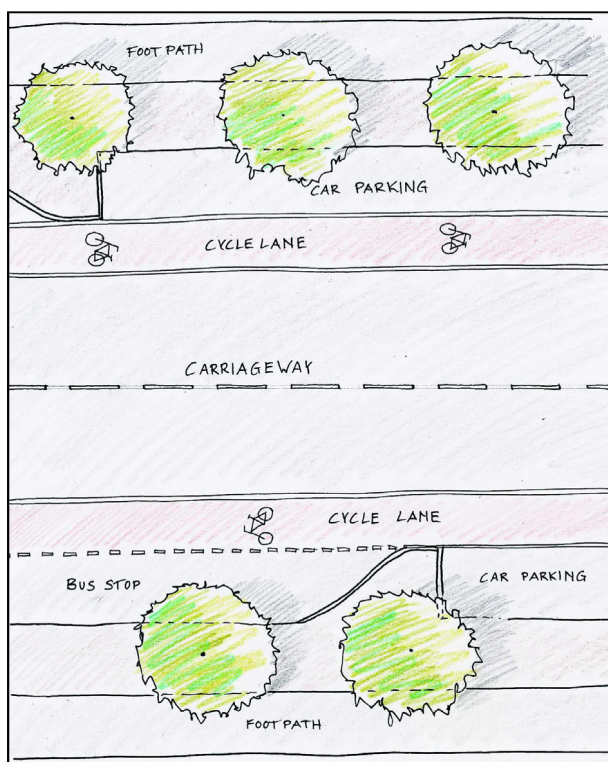 FOOT PATH
CAR PARKING
CYCLE LANE
CARRIAGEWAY
CYCLE LANE
BUS STOP
CAR PARKING
FOOTPATH